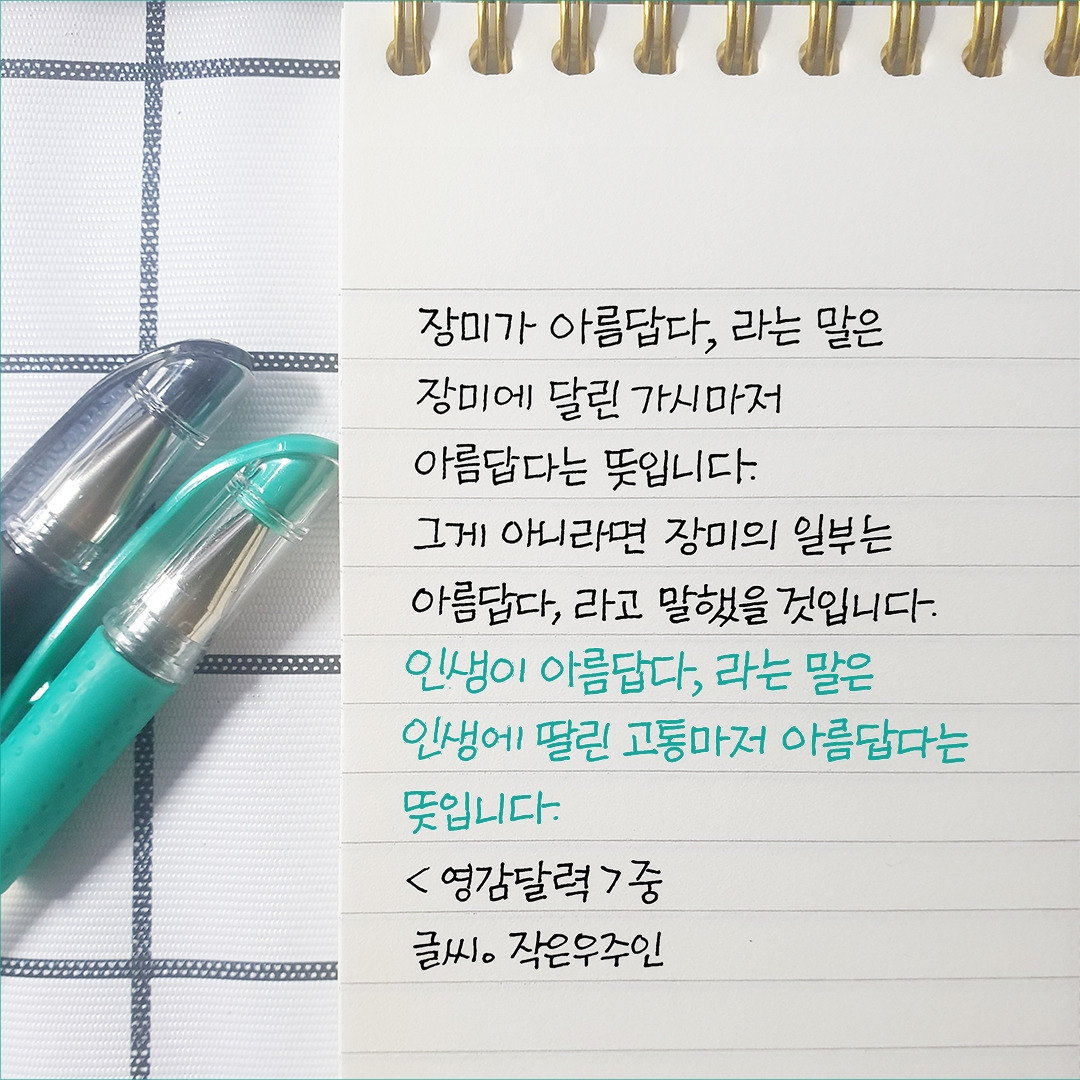 장미가 아름답다, 라는 말은
장미에 달린 가시마저
아름답다는 뜻입니다.
그게 아니라면 장미의 일부는
아름답다, 라고 말했을 것입니다.
인생이 아름답다, 라는 말은
인생에 딸린 고통마저 아름답다는
뜻입니다.
<영감달력>중
글씨. 작은우주인